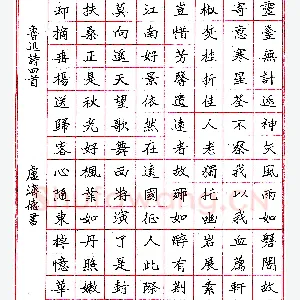 靈臺無計逃神矢風雨如磐闇故
寄意寒星荃不察我以我血薦軒
椒焚桂折佳人老獨托幽巖展素
豈惜芳馨遺遠者故鄉如醉有荊
江南好景依然在遠國征人此際
莫向遙天望歌舞西游演了是封
扶桑正是秋光好楓葉如丹照嫩
却摘垂楊送歸客心隨東棹憶華
魯迅詩四首